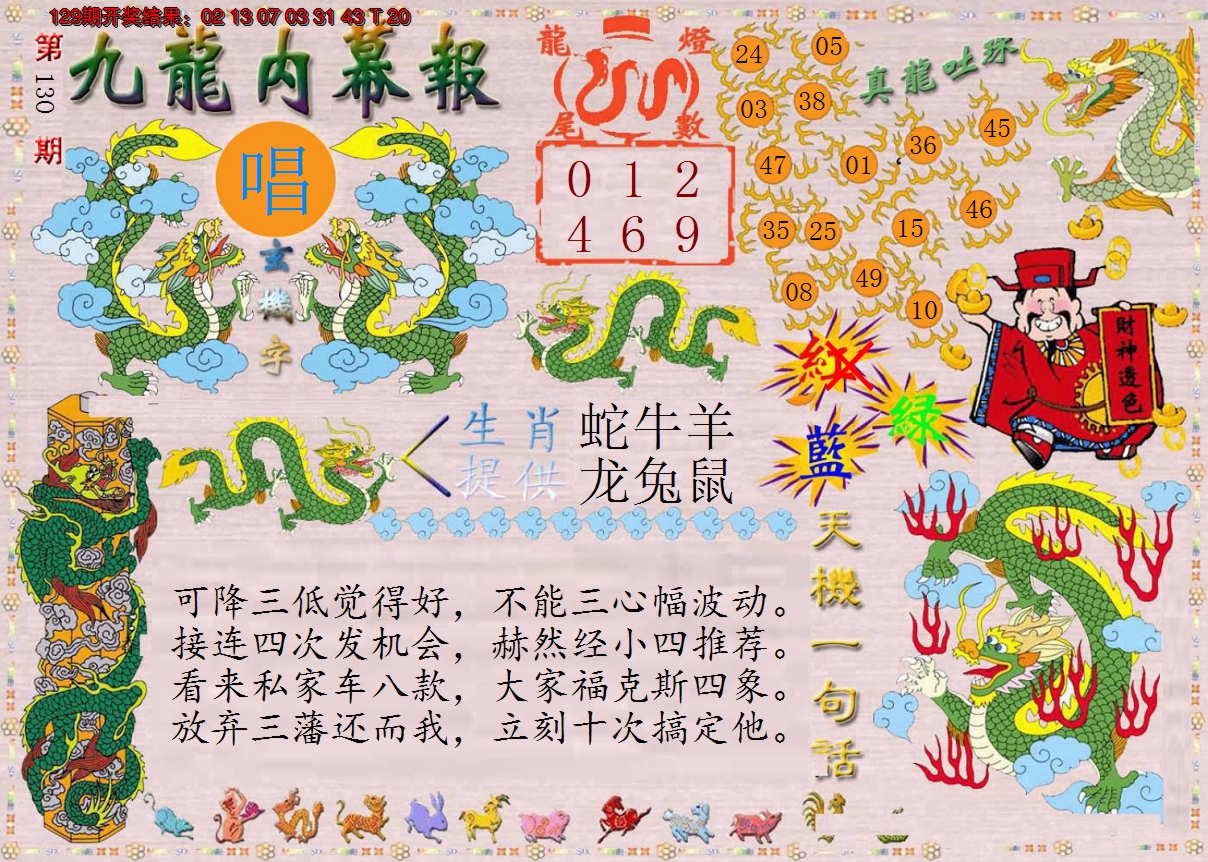 129期开奖结果：02 13 07 03 31 43 T 20
第130期
九龍内幕報
唱
玄機字
龍燈
尾數
0 1 2
4 6 9
真龍吐珠
24
05
03
38
47
01
36
45
35
25
15
46
08
49
10
紅
綠
藍
財神透色
生肖
提供
蛇牛羊
龙兔鼠
天機一句话
可降三低觉得好，不能三心幅波动。
接连四次发机会，赫然经小四推荐。
看来私家车八款，大家福克斯四象。
放弃三藩还而我，立刻十次搞定他。